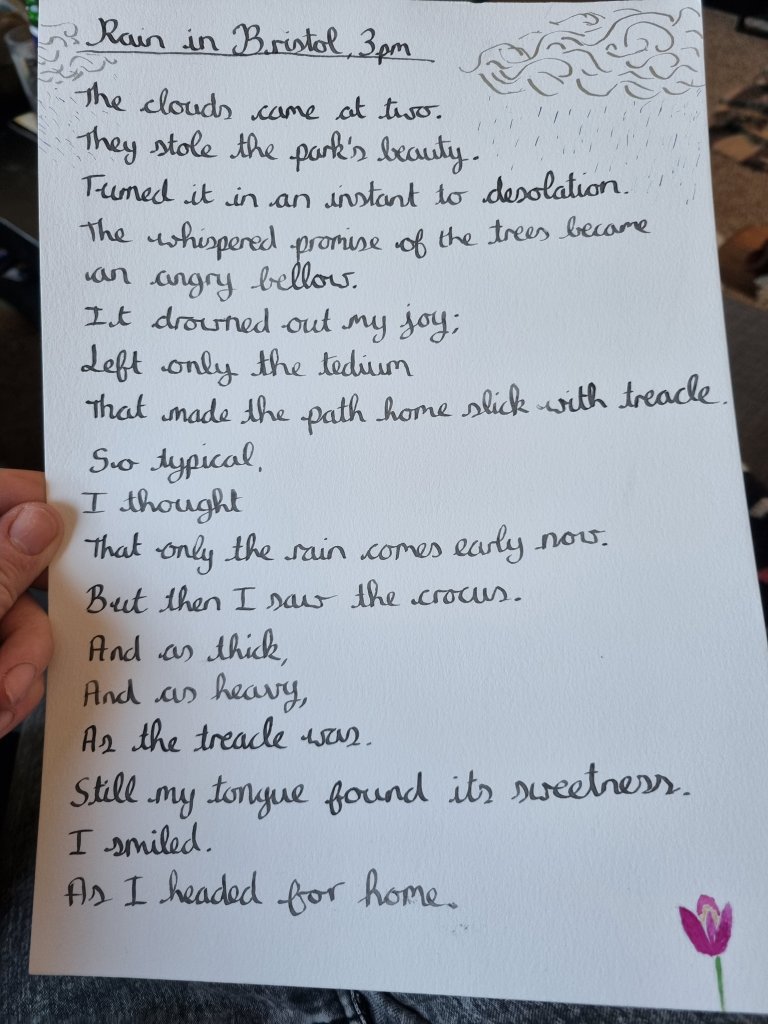 Rain in Bristol, 3pm
The clouds came at two.
They stole the park's beauty.
Turned it in an instant to desolation.
The whispered promise of the trees became
an angry bellow.
It drowned out my joy;
Left only the tedium
That made the path home slick with treacle.
So typical,
I thought
That only the rain comes early now.
But then I saw the crocus.
And as thick,
And as heavy,
As the treacle was.
Still my tongue found its sweetness.
I smiled.
As I headed for home.